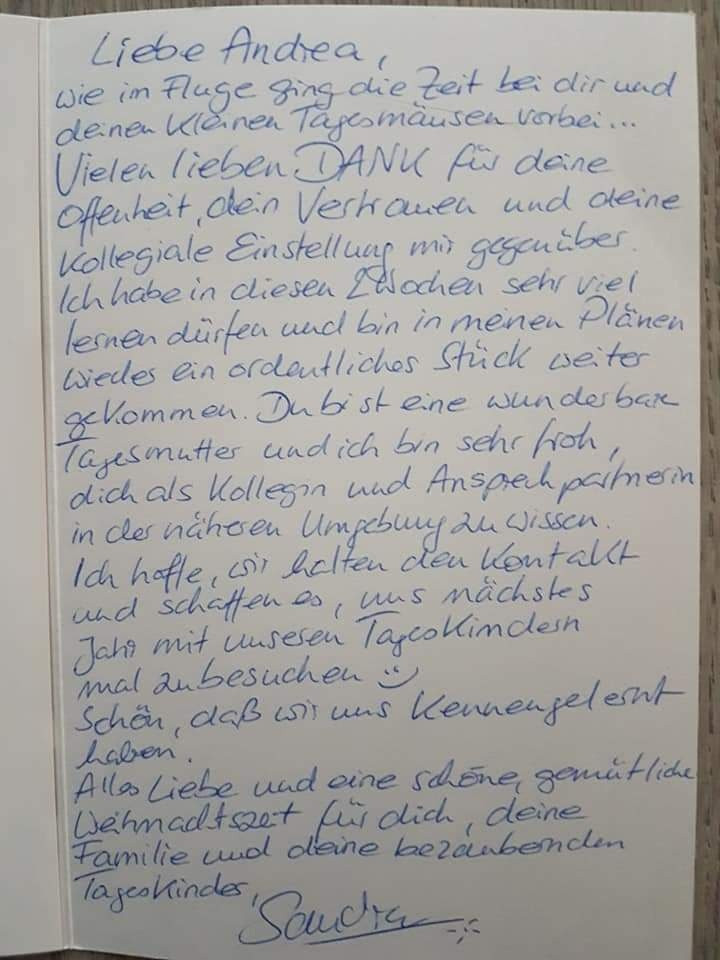 Liebe Andrea,
wie im Fluge ging die Zeit bei dir und
deinen kleinen Tagesmäusen vorbei...
Vielen lieben DANK für deine
Offenheit, dein Vertrauen und deine
kollegiale Einstellung mir gegenüber.
Ich habe in diesen 2 Wochen sehr viel
lernen dürfen und bin in meinen Plänen
wieder ein ordentliches Stück weiter
gekommen. Du bist eine wunderbare
Tagesmutter und ich bin sehr froh,
dich als Kollegin und Ansprechpartnerin
in der näheren Umgebung zu wissen.
Ich hoffe, wir halten den Kontakt
und schaffen es, uns nächstes
Jahr mit unseren Tageskindern
mal zu besuchen :)
Schön, daß wir uns kennengelernt
haben.
Alles Liebe und eine schöne, gemütliche
Weihnachtszeit für dich, deine
Familie und deine bezaubernden
Tageskinder,
Sandra